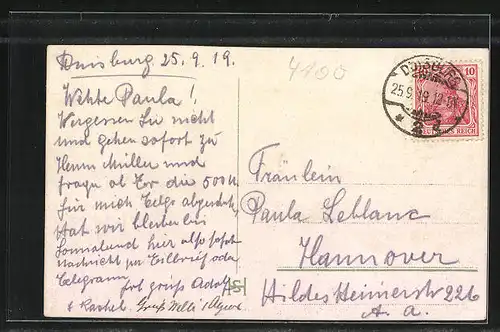 Duisburg 25.9.19.
Wehte Paula!
Vergessen Sie nicht
und gehen sofort zu
Herrn Müller und
fragen ob Er die 500 M
für mich abgeschickt,
Hat wir bleiben bis
Sonnabend hier also sofort
Nachricht per Eilbrief oder
Telegramm
gruß Adolf
& Rachel. Gruß Nelli &
4100
DUISBURG
25.9.19. 12-1N
* 2 *
10
DEUTSCHES REICH
Fräulein
Paula Leblanc
Hannover
Hildesheimerstr 226
A. A.